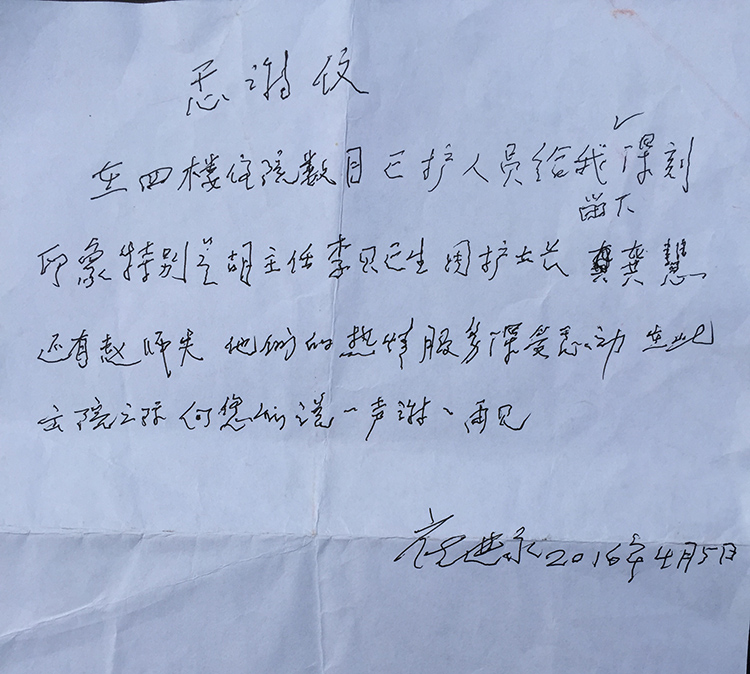 感谢信
在四楼住院数日医护人员给我留下深刻
印象特别是胡主任李贝医生周护士长 龚慧
还有赵师失 他们的热情服务深受感动 在此
出院之际向您们说一声谢谢再见
2016年4月5日